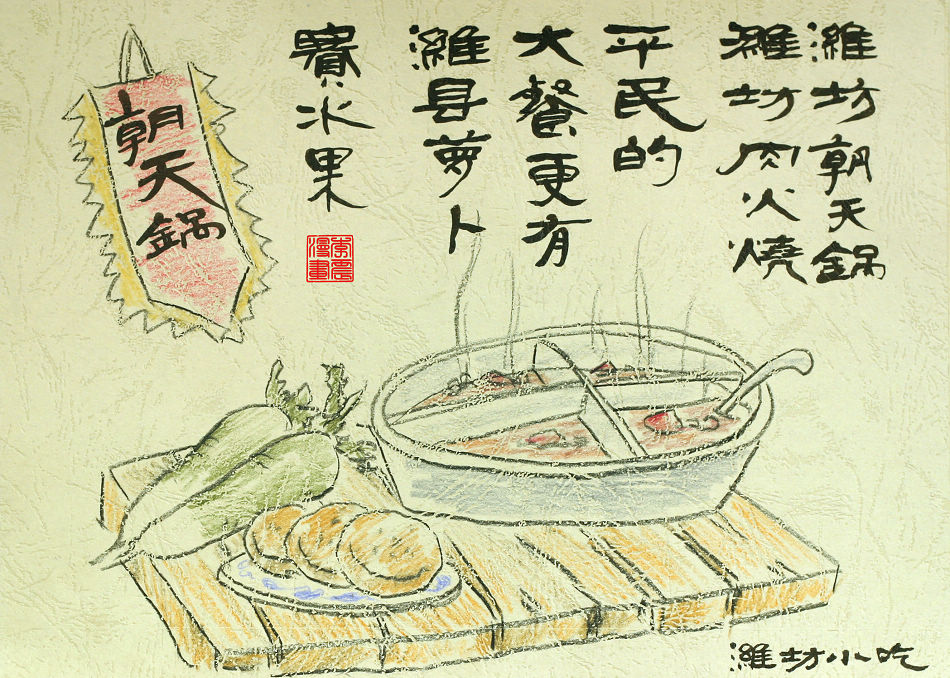 濰坊朝天鍋
濰坊肉火燒
平民的
大餐更有
濰县萝卜
賽水果
漫畫
朝天鍋
濰坊小吃